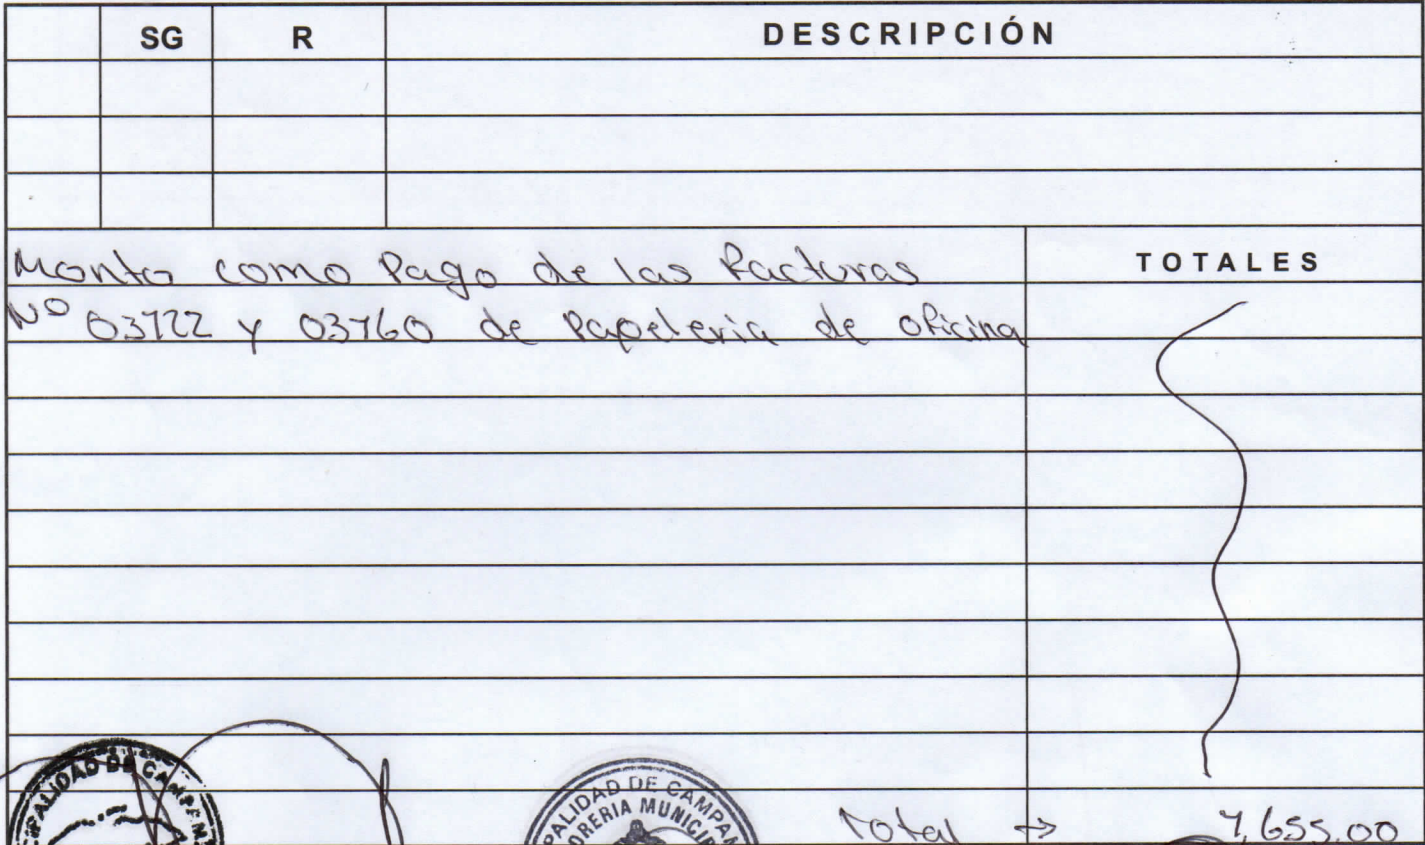 SG R DESCRIPCIÓN
Monto como Pago de las Facturas TOTALES
Nº 03722 y 03760 de Papeleria de oficina
CIPALIDAD DE CAMPAM
PALIDAD DE CAMPAM
ORERIA MUNICIP
Total → 7,655.00